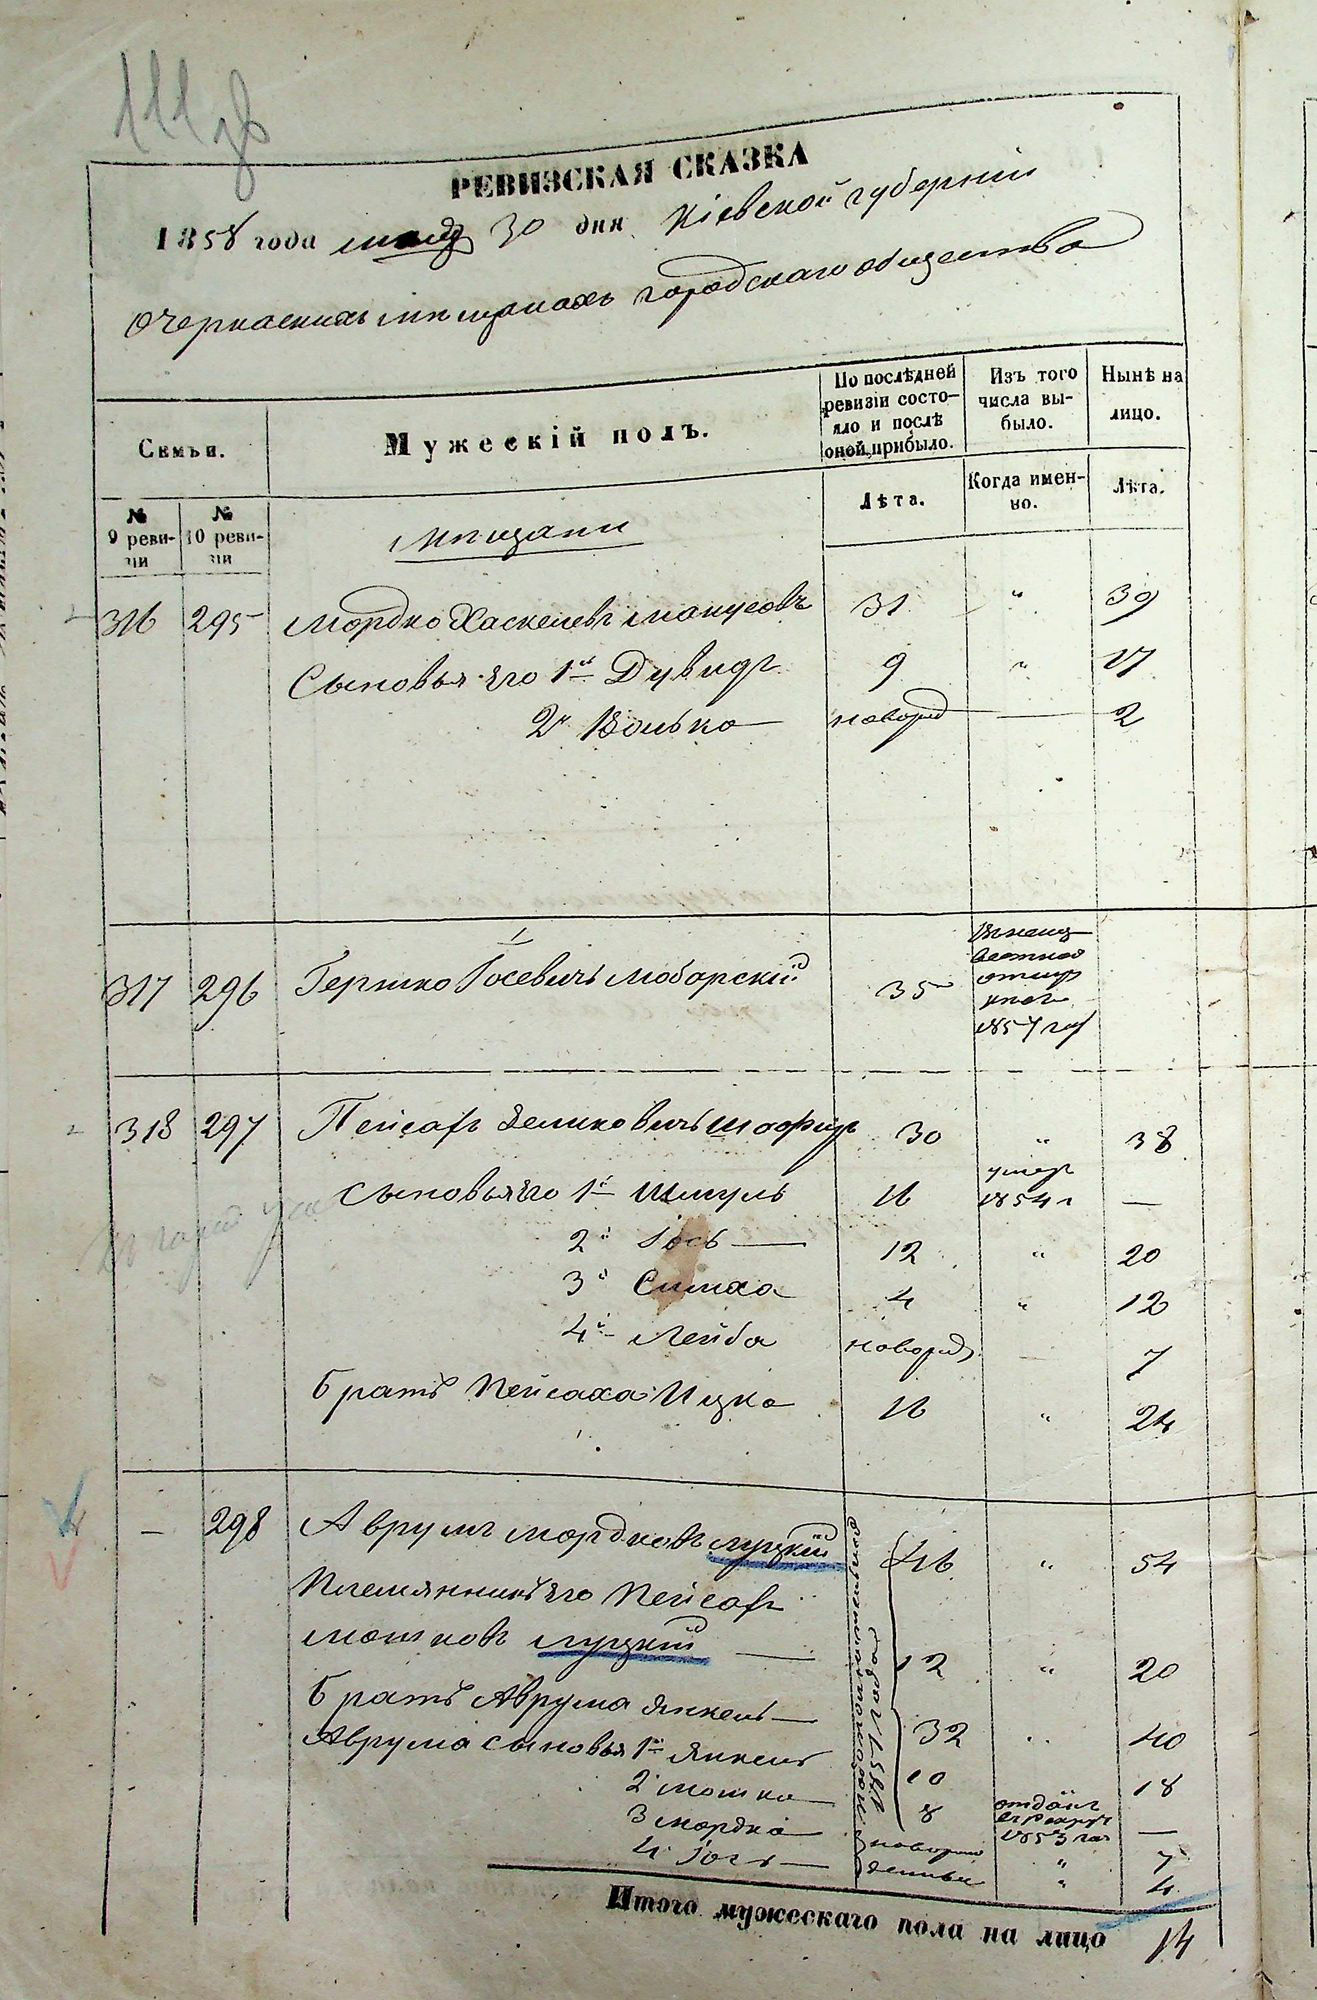 111 зв
РЕВИЗСКАЯ СКАЗКА
1858 года мая 30 дня Кіевской губерніи
О Черкаскихъ мѣщанахъ городскаго общества
Семьи.
Мужескій полъ.
По послѣдней ревизіи состояло и послѣ оной прибыло.
Изъ того числа выбыло.
Нынѣ на лицо.
№ 9 ревизіи
№ 10 ревизіи
Лѣта.
Когда именно.
Лѣта.
Мѣщани
316 295 Мордко Хаскелевъ Манусовъ 31 " 39
Сыновья его 1й Дувидъ 9 " 17
2й Волько — новорожд — 2
317 296 Гершко Іосевичъ Моборскій 35 въ неизвестной отлучке 1857 год
318 297 Пейсахъ Зеликовичъ Шофиръ 30 " 38
Сыновья его 1й Шмуль 16 умеръ 1854 г —
2й Іось — 12 " 20
3й Симха 4 " 12
4й Лейба новорожд — 7
Братъ Пейсаха Ицко 16 " 24
— 298 Аврумъ Мордковъ Луцкій 46 " 54
Племянникъ его Пейсахъ
Мошковъ Луцкій — 12 " 20
Братъ Аврума Янкель — 32 " 40
Аврума сыновья 1й Янкель 10 18
2 Мошка 8 отданъ въ рекруты 1853 год —
3 Мордко новорож " 7
4 Іось — денные " 4
1851 года
Итого мужескаго пола на лицо 14